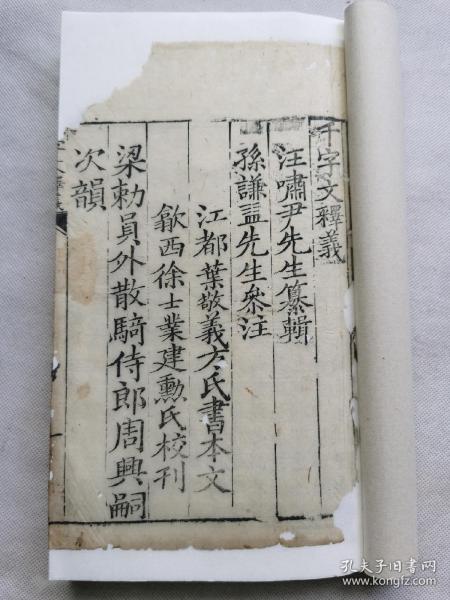 千字文釋義
汪嘯尹先生纂輯
孫謙益先生參注
江都葉敬義方氏書本文
歙西徐士業建勳氏校刊
梁勅員外散騎侍郎周興嗣
次韻
孔夫子旧书网
www.kongfz.com